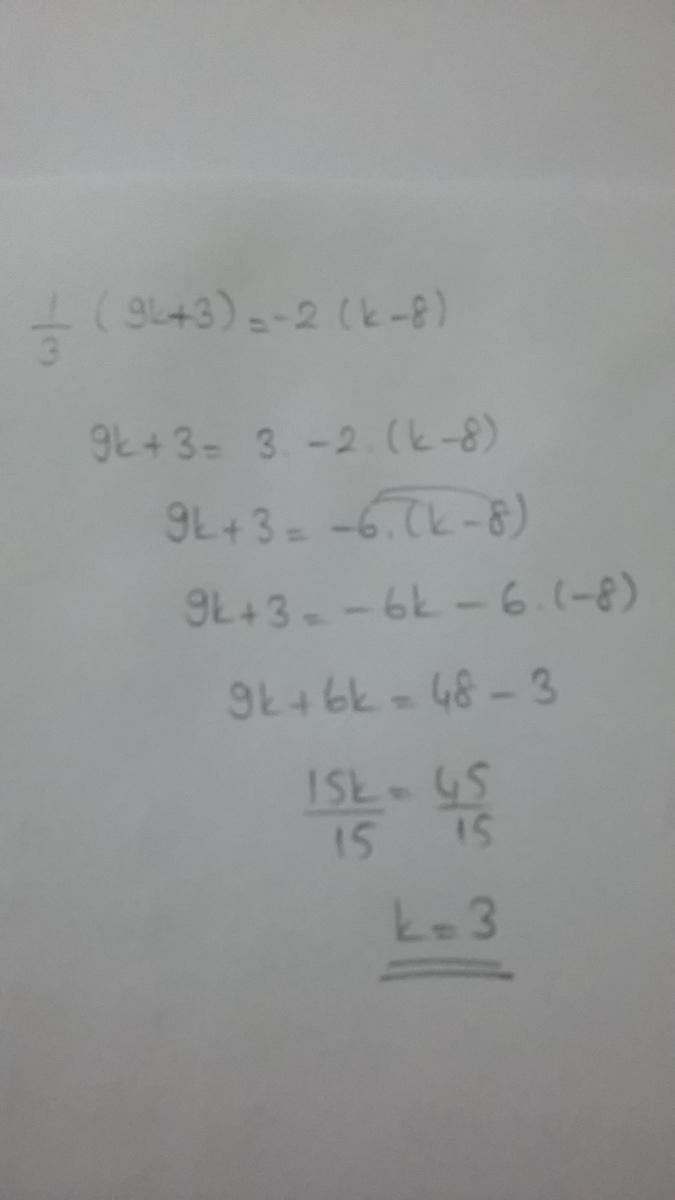 1/3 (9k+3) = -2 (k-8)
9k+3 = 3. -2. (k-8)
9k+3 = -6. (k-8)
9k+3 = -6k - 6. (-8)
9k+6k = 48 - 3
15k/15 = 45/15
k = 3